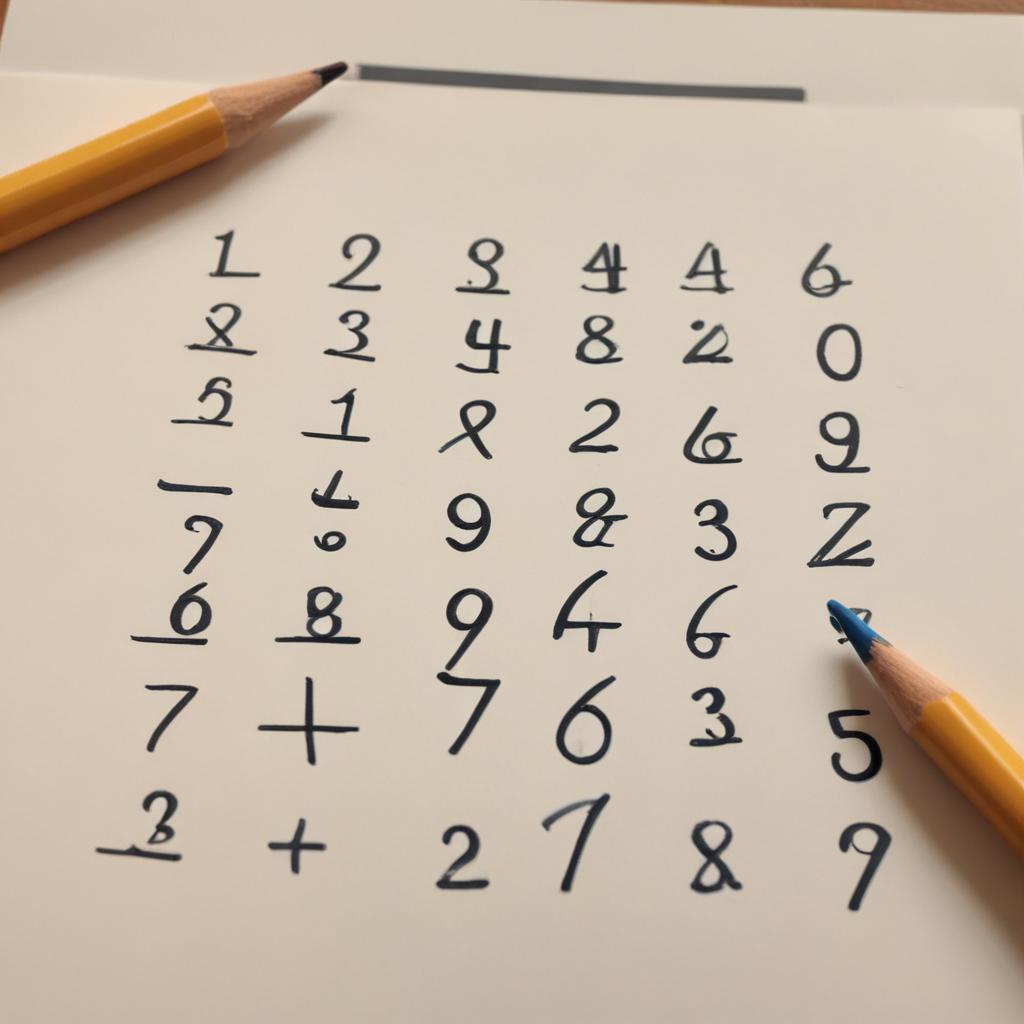 1 2 3 4 4 6
3 4 8 0
5 1 2 6 9
7 9 8 3 Z
6 8 9 4 6
7 + 7 6 3 5
3 + 2 7 8 9